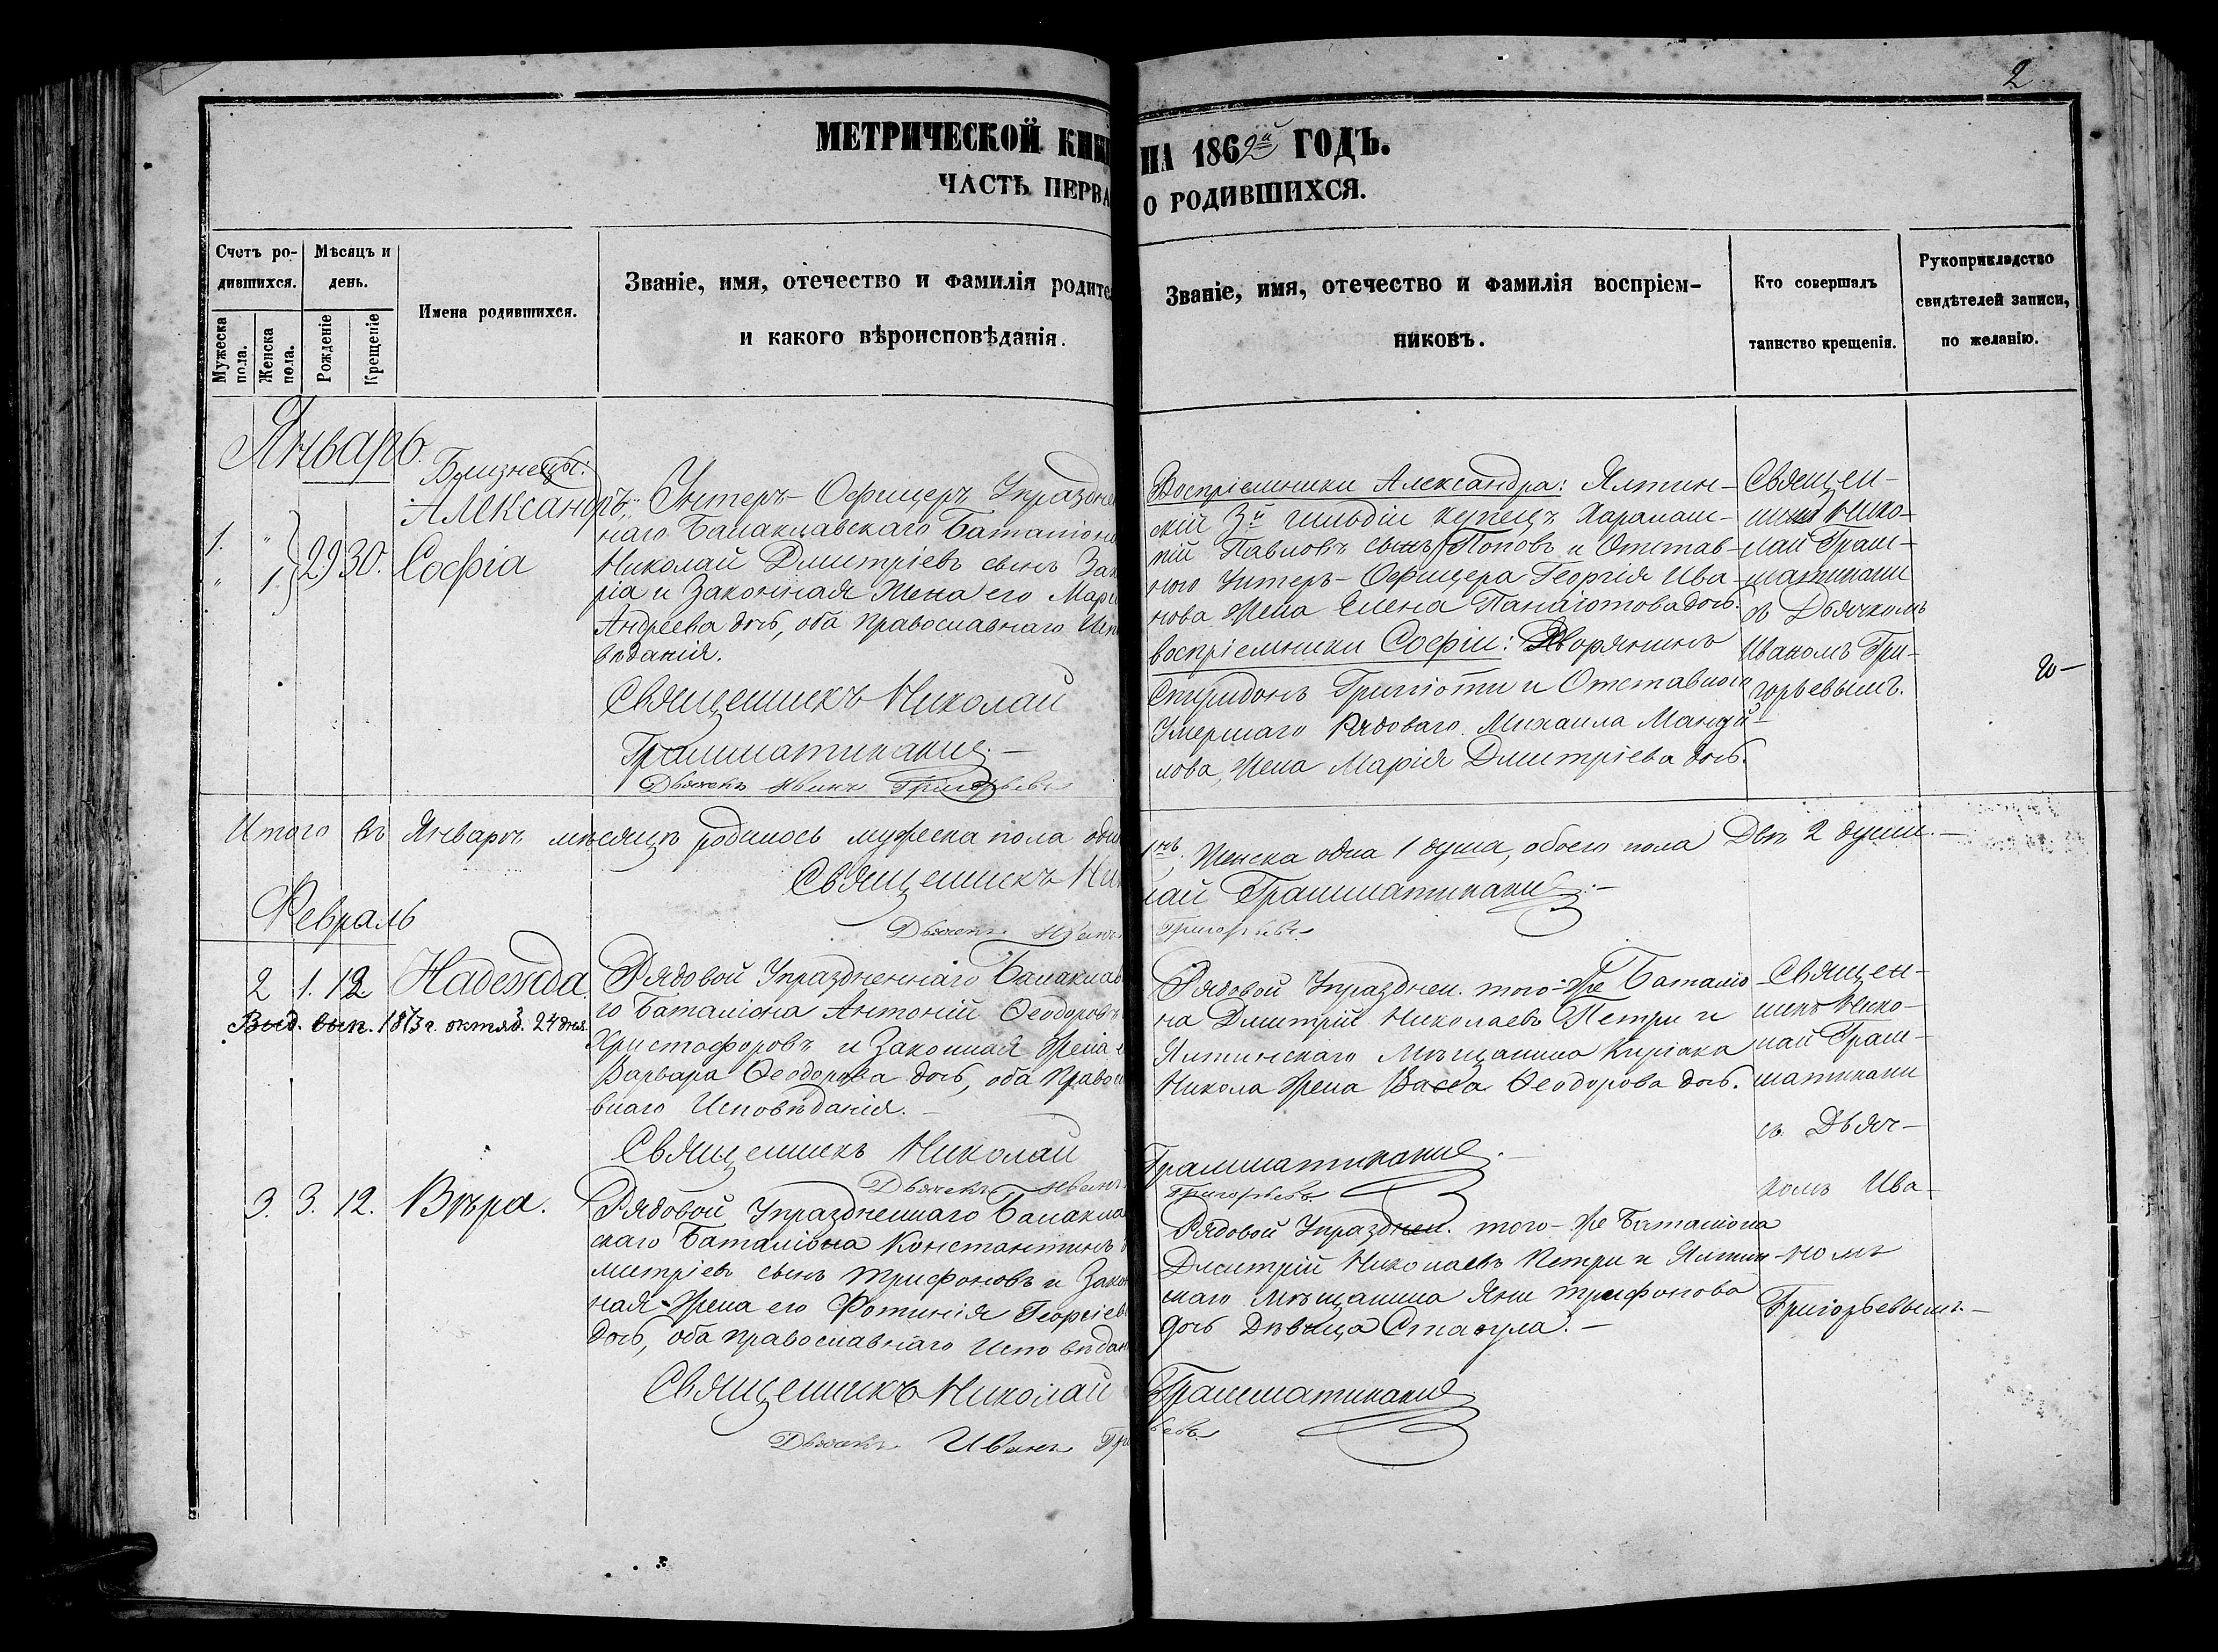 2
МЕТРИЧЕСКОЙ КНИ
НА 1862й ГОДЪ.
ЧАСТЬ ПЕРВА
О РОДИВШИХСЯ.
Счетъ ро-
дившихся.
Мужеска пола.
Женска пола.
Мѣсяцъ и
день.
Рожденіе
Крещеніе
Имена родившихся.
Званіе, имя, отечество и фамилія родите
и какого вѣроисповѣданія.
Званіе, имя, отечество и фамилія воспріем-
никовъ.
Кто совершалъ
таинство крещенія.
Рукоприкладство
свидѣтелей записи,
по желанію.
Январь.
1. " 29 30.
" 1.
Близнецы:
Александръ.
Софіа
Унтеръ-Офицеръ Упраздне
наго Балаклавскаго Баталіон
Николай Дмитріевъ сынъ
ріа и Законная Жена его Марі
Андреева дочь, оба Православнаго Исп
вѣданія.
Священникъ Николай
Грамматикаки.
Дьячекъ Иванъ Григорьевъ
Воспріемники Александра: Ялтин-
скій 3й гильдіи купецъ Харалам-
пій Павловъ сынъ Поповъ и Отстав-
ного Унтеръ-Офицера Георгія Ива-
нова Жена Елена Панаіотова дочь.
воспріемники Софіи: Дворянинъ
Спиридонъ Григіоти и Отставнога
Умершаго Рядоваго Михаила Мануй-
лова, Жена Марія Дмитріева дочь.
Священ-
никъ Нико-
лай Грам-
матикаки
съ Дьячкомъ
Иваномъ Гри-
горьевымъ.
Итого въ Январѣ мѣсяцѣ родилось мужеска пола оди
1нъ. Женска одна 1 душа, обоего пола Двѣ 2 души.
Священникъ Ник
лай Грамматикаки.
Дьячекъ Иванъ
Григорьевъ
Февраль
2 1. 12 Надежда.
Выд. вып. 1873 г. октяб. 24 дня.
Рядовой Упраздненнаго Балаклав
го Баталіона Антоній Ѳеодоровъ
Христофоровъ и Законная Жена е
Варвара Ѳеодорова дочь, оба Правос
внаго Исповѣданія.
Священникъ Николай
Грамматикаки.
Дьячекъ Иванъ
Григорьевъ
Рядовой Упразднен. того-же Баталіо
на Дмитрій Николаевъ Петри и
Ялтинскаго Мѣщанина Киріака
Никола Жена Васса Ѳеодорова дочь.
Священ-
никъ Нико-
лай Грам-
матикаки
съ Дьяч-
комъ Ива-
номъ
Григорьевымъ.
3. 3. 12. Вѣра.
Рядовой Упраздненнаго Балакла
скаго Баталіона Константинъ
митріев сынъ Трифоновъ и Закон
ная Жена его Фотинія Георгіев
дочь, оба православнаго Исповѣдан
Священникъ Николай
Грамматикаки
Дьячекъ Иванъ Гри
ьевъ
Рядовой Упразднен. того-же Баталіона
Дмитрій Николаевъ Петри и Ялтин-
скаго Мѣщанина Яни Трифонова
дочь Дѣвица Ставула.